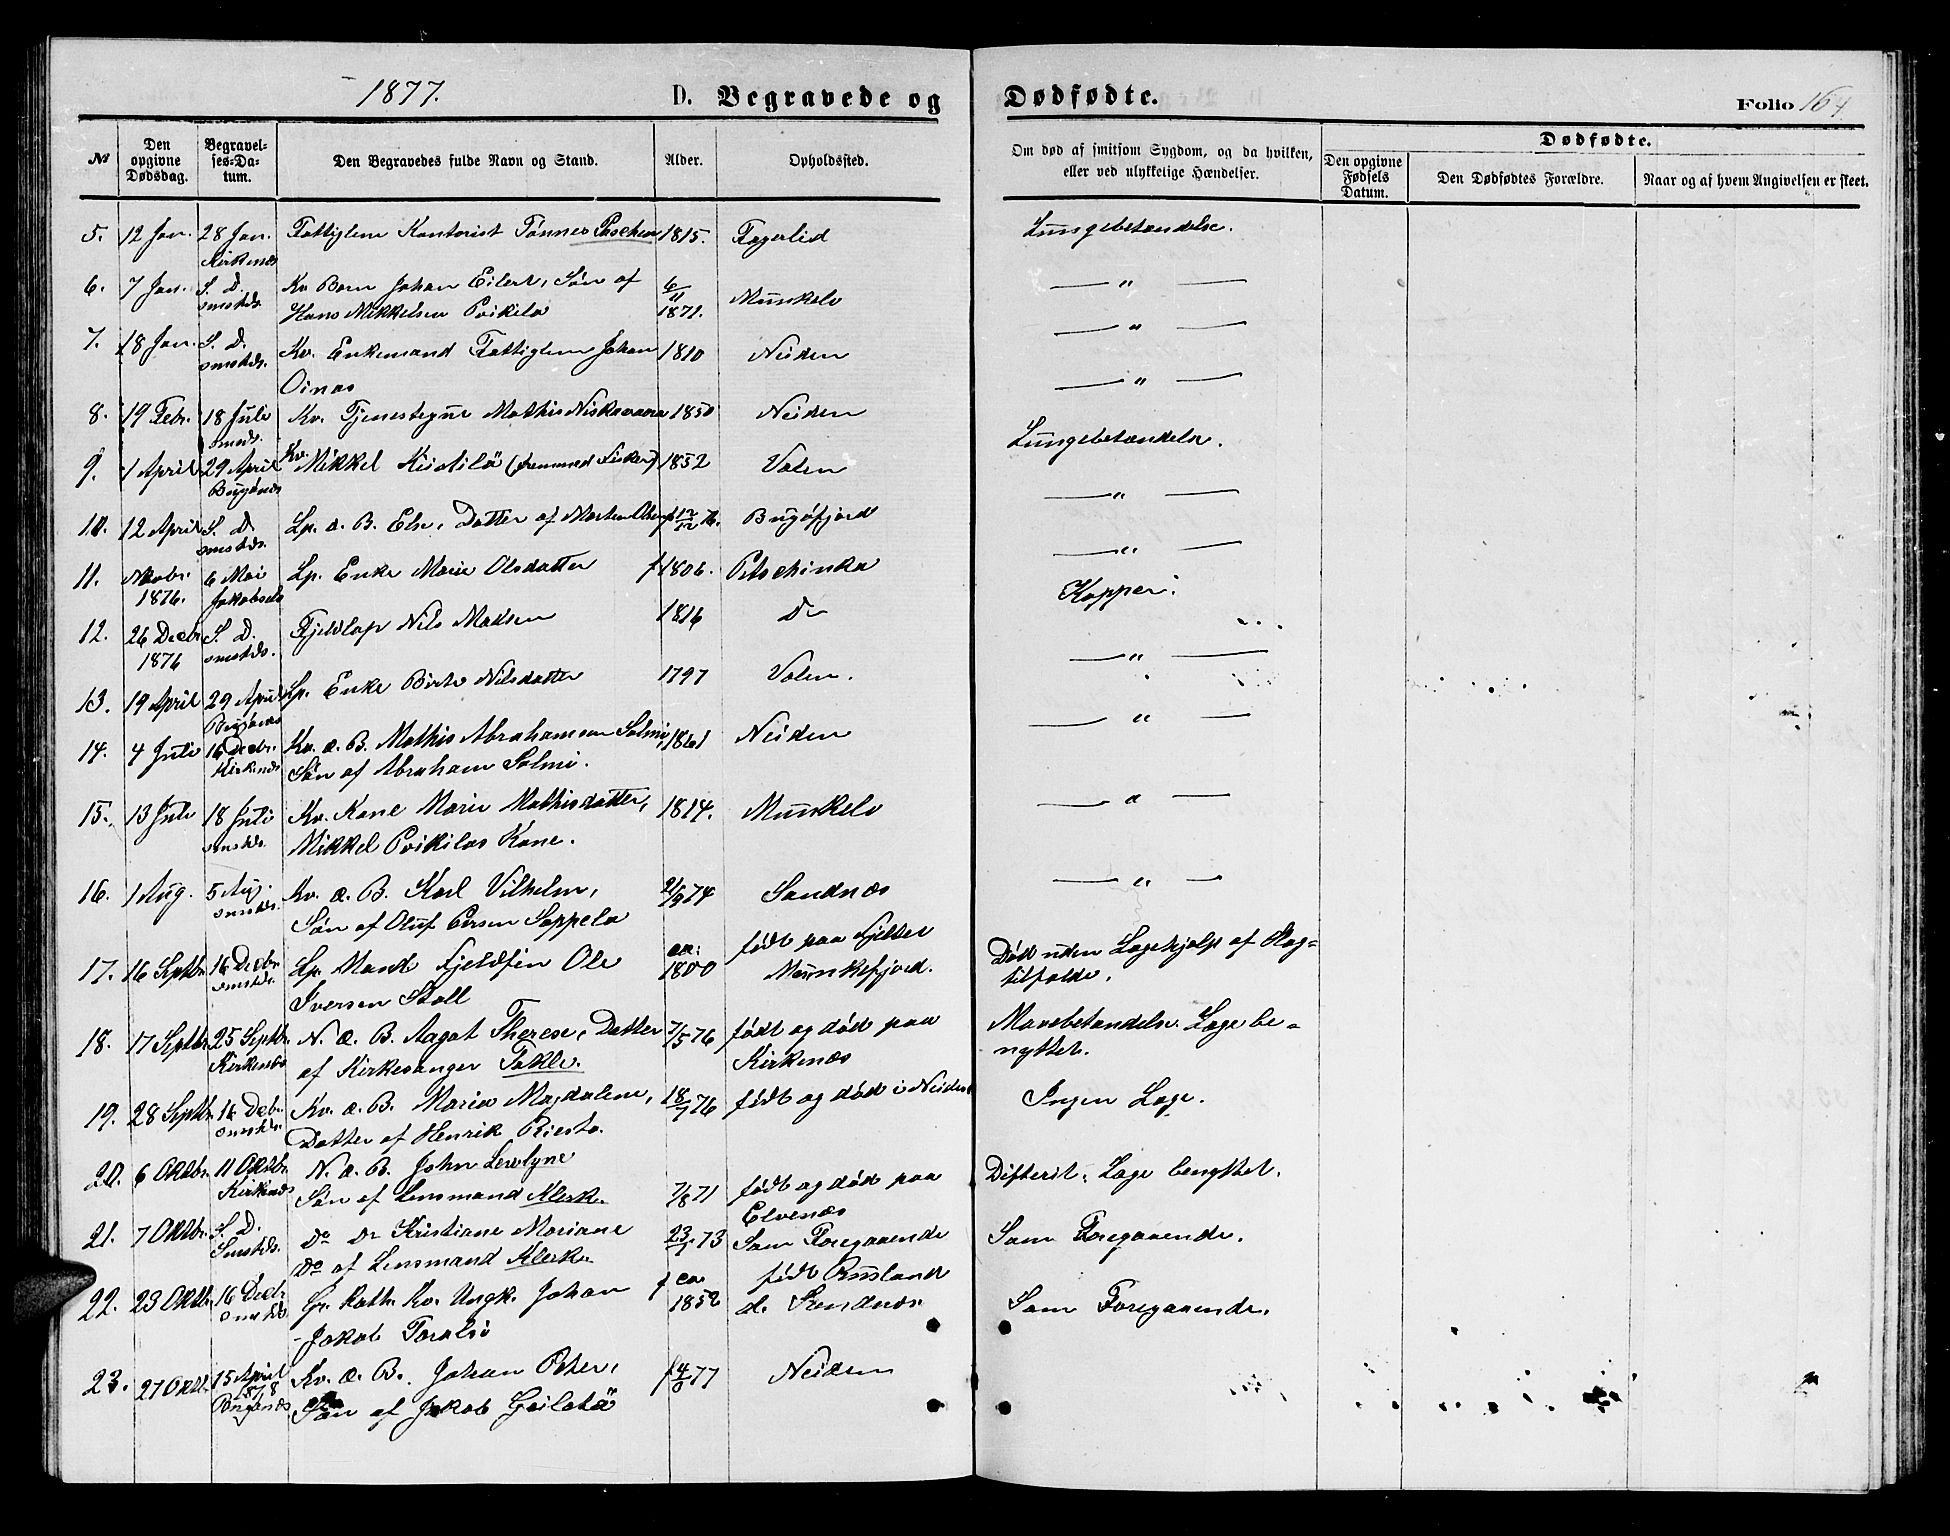 1877.
D. Begravede og Dødfødte.
Folio 164
№
Den opgivne Dødsdag.
Begravelses-Datum.
Den Begravedes fulde Navn og Stand.
Alder.
Opholdssted.
Om død af smitsom Sygdom, og da hvilken, eller ved ulykkelige Hændelser.
Dødfødte.
Den opgivne Fødsels Datum.
Den Dødfødtes Forældre.
Naar og af hvem Angivelsen er skeet.
5. 12 Jan. 28 Jan. Fattiglem Kontorist Tønnes Paschen 1815. Fagerlid Lungebetændelse.
Kirkenæs
6. 7 Jan. S. D. Kv. Barn Johan Eilert, Søn af 6/11 Munkelv — " —
smstds. Hans Mikkelsen Poikela 1871.
7. 18 Jan. S. D. Kv. Enkemand Fattiglem Johan 1810 Neiden — " —
smstds. Oinas — " —
8. 19 Febr. 18 Juli Kv. Tjenestegut Mathis Niskavaara 1850 Neiden Lungebetændelse.
smstds.
9. 1 April 29 April Kv. Mikkel (fremmed Fisker) 1852 Valen — " —
Bugønæs
10. 12 April S. D. Lp. æ. B. Else, Datter af Morten Olsen f 12/12 76. Bugøfjord — " —
smstds.
11. Novbr. 6 Mai Lp. Enke Marie Olsdatter f 1806. Petschinka Kopper.
1876. Jakobselv
12. 26 Decbr S. D. Fjeldlap Nils Madsen 1816 Do — " —
1876 smstds.
13. 19 April 29 April Lp. Enke Birte Nilsdatter 1797 Valen. — " —
Bugønæs
14. 4 Juli 16 Decbr. Kv. æ. B. Mathis Abrahamsen Salmi, 1861 Neiden — " —
Kirkenæs Søn af Abraham Salmi.
15. 13 Juli 18 Juli Kv. Kone Marie Mathisdatter, 1814. Munkelv — " —
smstds. Mikkel Poikilas Kone.
16. 1 Aug. 5 Aug. Kv. æ. B. Karl Vilhelm, 21/9 74 Sandnæs
smstds. Søn af Oluf Persen Sappela
17. 16 Septbr. 16 Decbr. Lp. Mand Fjeldfin Ole ca: 1800 født paa Fjeldet Død uden Lægehjælp af Slag-
smstds. Iversen Stall Munkefjord. tilfælde.
18. 17 Septbr. 25 Septbr. N. æ. B. Aagot Therese, Datter 7/5 76 født og død paa Mavebetændelse. Læge be-
Kirkenæs af Kirkesanger Takle. Kirkenæs nyttet.
19. 28 Septbr. 16 Decbr. Kv. æ. B. Maria Magdalene, 18/7 76 født og død i Neiden Ingen Læge.
smstds. Datter af Henrik Piesta.
20. 6 Oktbr. 11 Oktbr. N. æ. B. John
Kirkenæs Søn af Lensmand Klerk. 7/8 71 født og død paa Difterit. Læge benyttet.
Elvenæs
21. 7 Oktbr. S. D. Do Dr Kristiane Mariane 23/1 73 Som Foregaaende Som Foregaaende.
Smstds. Do af Lensmand Klerk.
22. 23 Oktbr. 16 Decbr Gr. Kath. Kv. Ungk. Johan f ca 1852 født Rusland Som Foregaaende.
smstds. Jakob d. Sandnæs.
23. 27 Oktbr. 15 April Kv. æ. B. Johan Peter, f 4/ 77 Neiden
1878 Søn af Jakob
Bugønæs